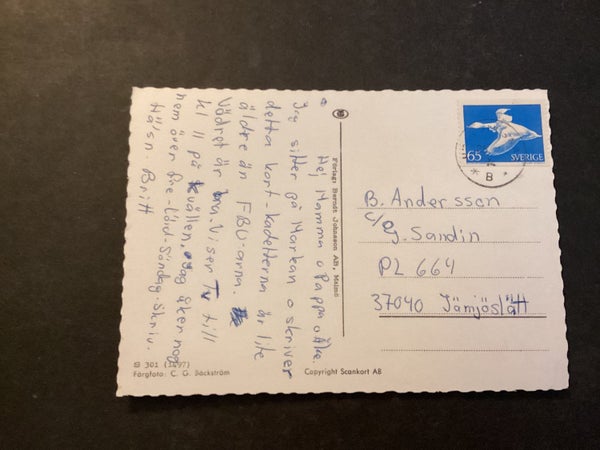 Hej Mamma o Pappa o Åke.
Jag sitter på Markan o skriver
detta kort - kadetterna är lite
äldre än FBU-arna.
Vädret är bra. Vi ser TV till
kl 11 på kvällen. Jag åker nog
hem över Fre-Lörd-Söndag. Skriv.
Häls. Britt
Förlag: Berndt Johnsson AB, Malmö
65 SVERIGE
B
B. Andersson
c/o G. Sandin
PL 664
37040 Jämjöslätt
B 301 (3497)
Färgfoto: C. G. Bäckström
Copyright Scankort AB